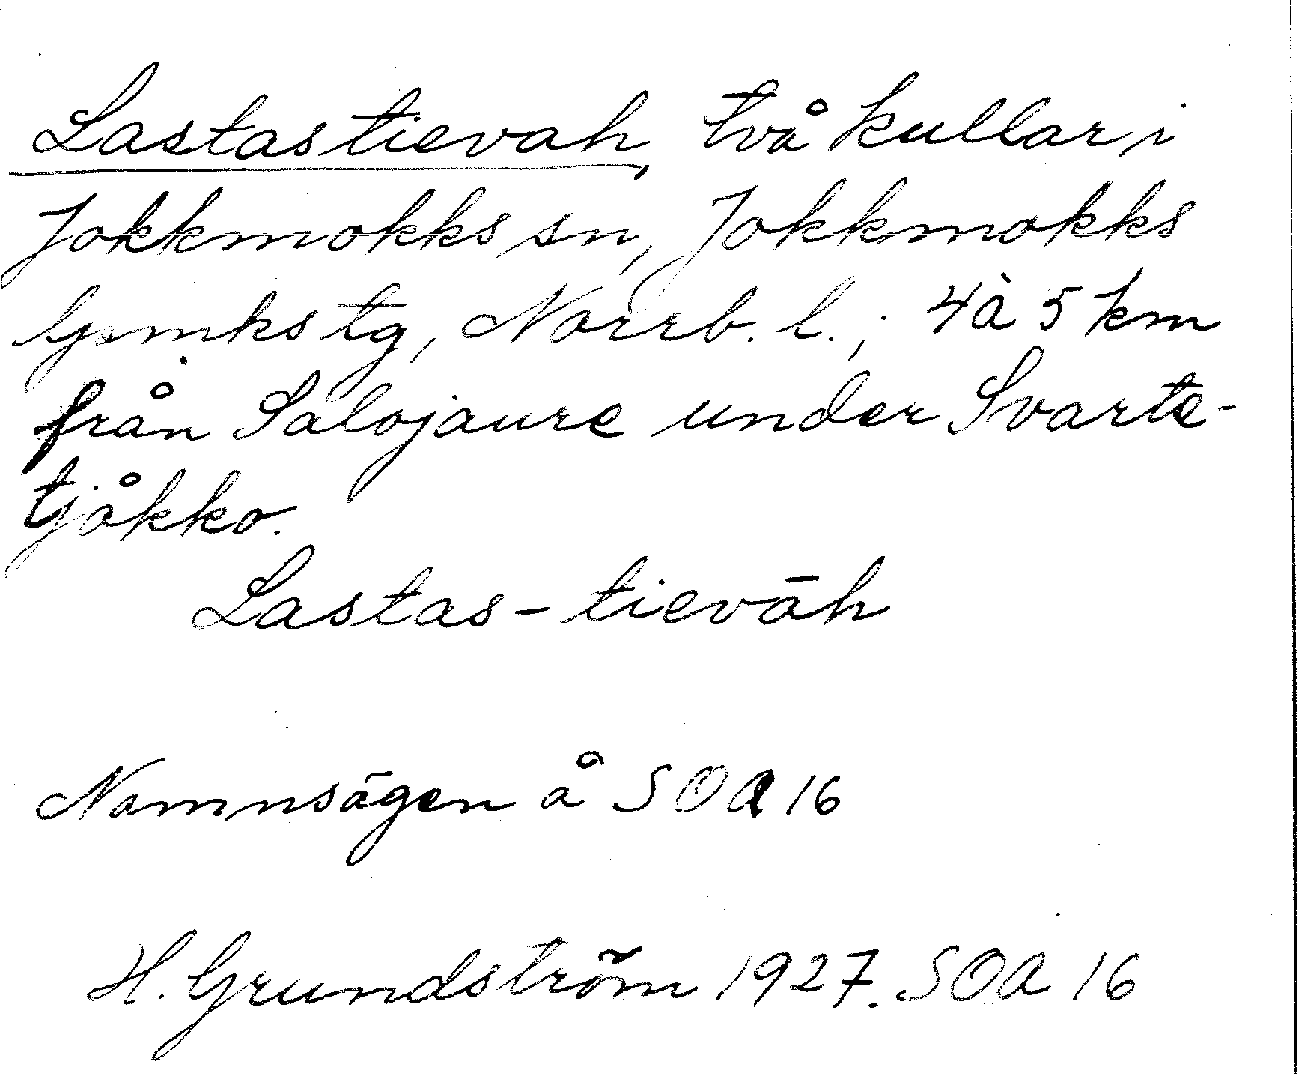 Lastastievah, två kullar i
Jokkmokks sn, Jokkmokks
lpmks tg, Norrb. l.; 4 à 5 km
från Salojaure under Svarte-
tjåkko.
Lastas-tievāh
Namnsägen å SOA 16
H. Grundström 1927. SOA 16